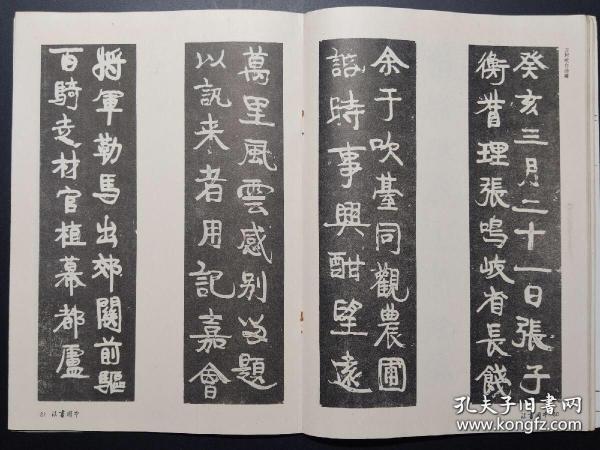 癸亥三月二十一日張子
衡督理張鳴岐省長餞
余于吹臺同觀農圃
諮時事興酣望遠
萬里風雲感別留題
以訊来者用記嘉會
將軍勒馬出郊關前驅
百騎走材官植幕都廬
中國書法
81
中國書法
孔夫子旧書网
www.kongfz.com